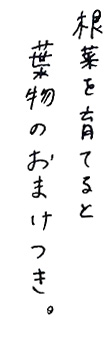 根菜を育てると
葉物のおまけつき。